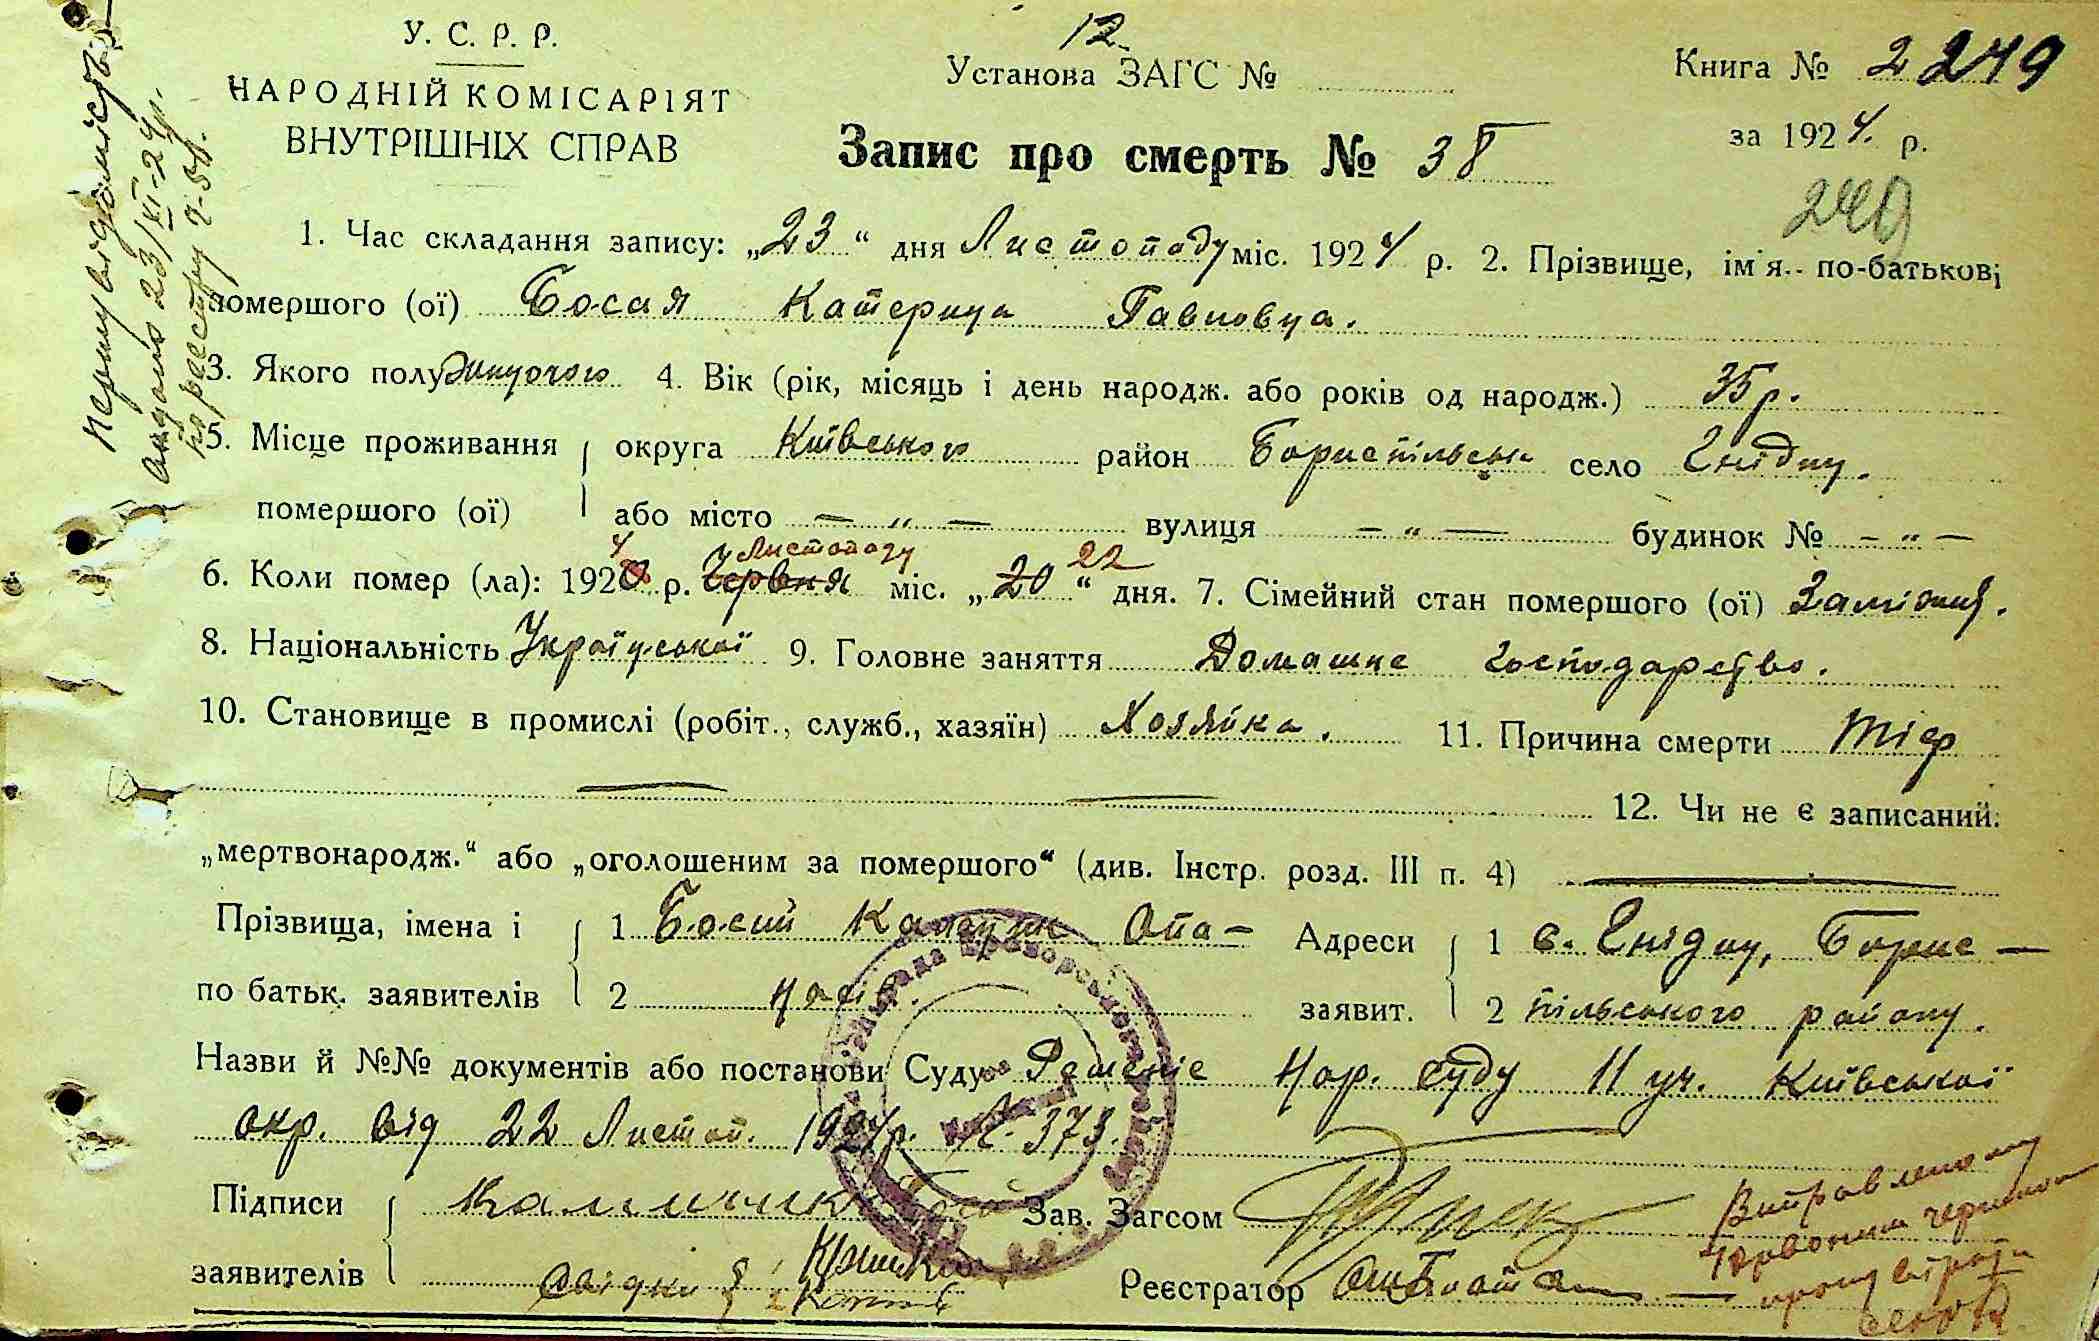 У. С. Р. Р.
НАРОДНІЙ КОМІСАРІЯТ
ВНУТРІШНІХ СПРАВ
12.
Установа ЗАГС №
Книга № 2 249
за 1924. р.
249
Запис про смерть № 38
1. Час складання запису: „23“ дня Листопаду міс. 1924 р. 2. Прізвище, ім'я.. по-батькові
помершого (ої) Босая Катерина Павловна.
3. Якого полу жиночого 4. Вік (рік, місяць і день народж. або років од народж.) 35 р.
5. Місце проживання округа Київського район Бориспільськ село Гнідин.
помершого (ої) або місто — „ — вулиця — „ — будинок № — „ —
4 Листопаду 22
6. Коли помер (ла): 1920 р. Червня міс. „20“ дня. 7. Сімейний стан помершого (ої) Заміжня.
8. Національність Української 9. Головне заняття Домашнє господарство.
10. Становище в промислі (робіт., служб., хазяїн) Хозяйка. 11. Причина смерти Тіф
12. Чи не є записаний.
„мертвонародж.“ або „оголошеним за помершого“ (див. Інстр. розд. III п. 4)
Прізвища, імена і 1 Босий Опа- Адреси 1 с. Гнідин, Борис-
по батьк. заявителів 2 насів. заявит. 2 пільського району.
Назви й №№ документів або постанови Суду Решеніе Нар. суду 11 уч. Київської
окр. від 22 Листоп. 1924 р. № 373.
Підписи Зав. Загсом
заявителів свідки Реєстратор
Виправленому
червоним чернилом
вірити